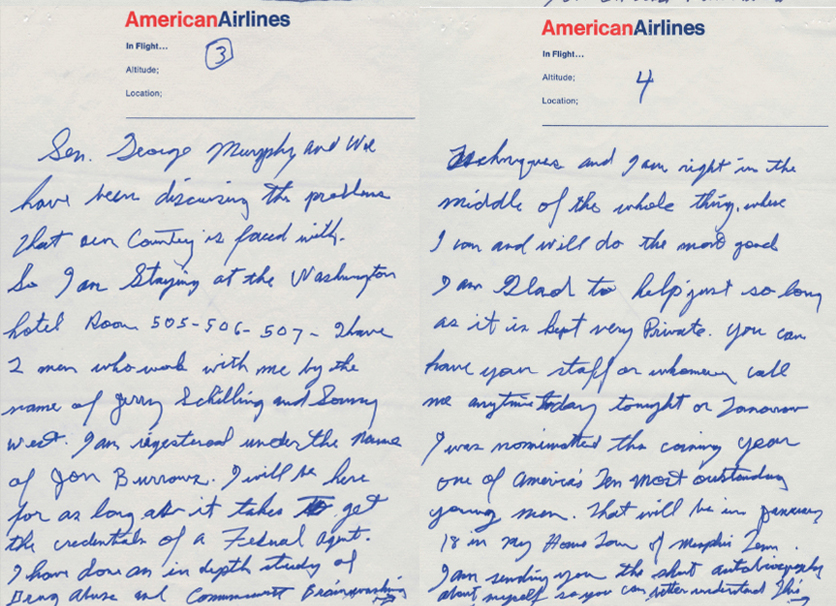 AmericanAirlines
In Flight...
Altitude;
Location;
3
Sen. George Murphy and We
have been discussing the problems
that our Country is faced with.
So I am Staying at the Washington
hotel Room 505-506-507- I have
2 men who work with me by the
name of Jerry Schilling and Sonny
West. I am registered under the name
of Jon Burrows. I will be here
for as long as it takes to get
the credentials of a Federal Agent.
I have done an in depth study of
Drug Abuse and Communist Brainwashing
AmericanAirlines
In Flight...
Altitude;
Location;
4
Techniques and I am right in the
middle of the whole thing, where
I can and will do the most good
I am Glad to help just so long
as it is kept very Private. You can
have your staff or whomever call
me anytime today tonight or Tomorrow
I was nominated the coming year
one of America's Ten most outstanding
young men. That will be in January
18 in my Home Town of Memphis Tenn.
I am sending you the short autobiography
about myself so you can better understand this